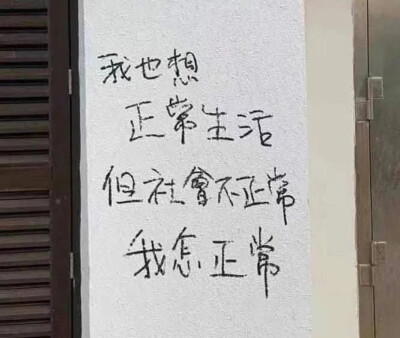 我也想
正常生活
但社會不正常
我怎正常